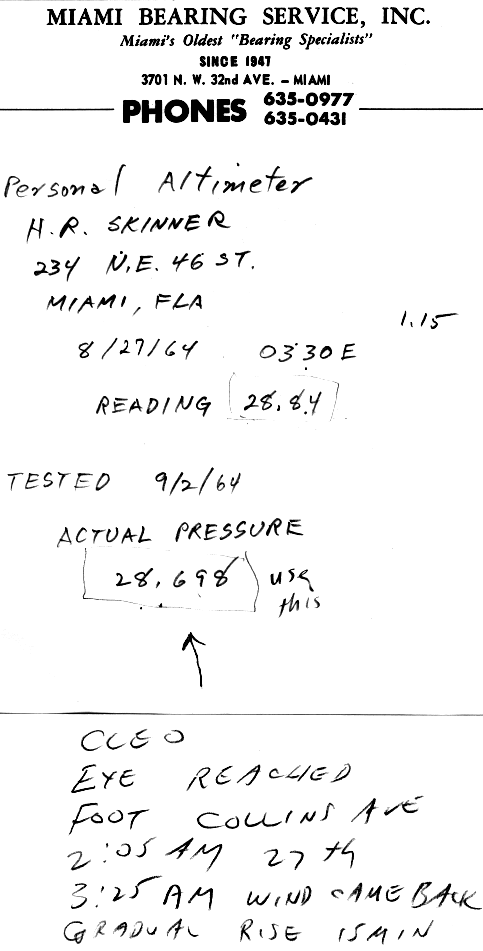 MIAMI BEARING SERVICE, INC.
Miami's Oldest "Bearing Specialists"
SINCE 1947
3701 N. W. 32nd AVE. – MIAMI
PHONES 635-0977
635-0431
Personal Altimeter
H.R. SKINNER
234 N.E. 46 ST.
MIAMI, FLA
1.15
8/27/64 0330 E
READING 28.84
TESTED 9/2/64
ACTUAL PRESSURE
28.698 use
this
CLEO
EYE REACHED
FOOT COLLINS AVE
2:05 AM 27 th
3:25 AM WIND CAME BACK
GRADUAL RISE 15 MIN